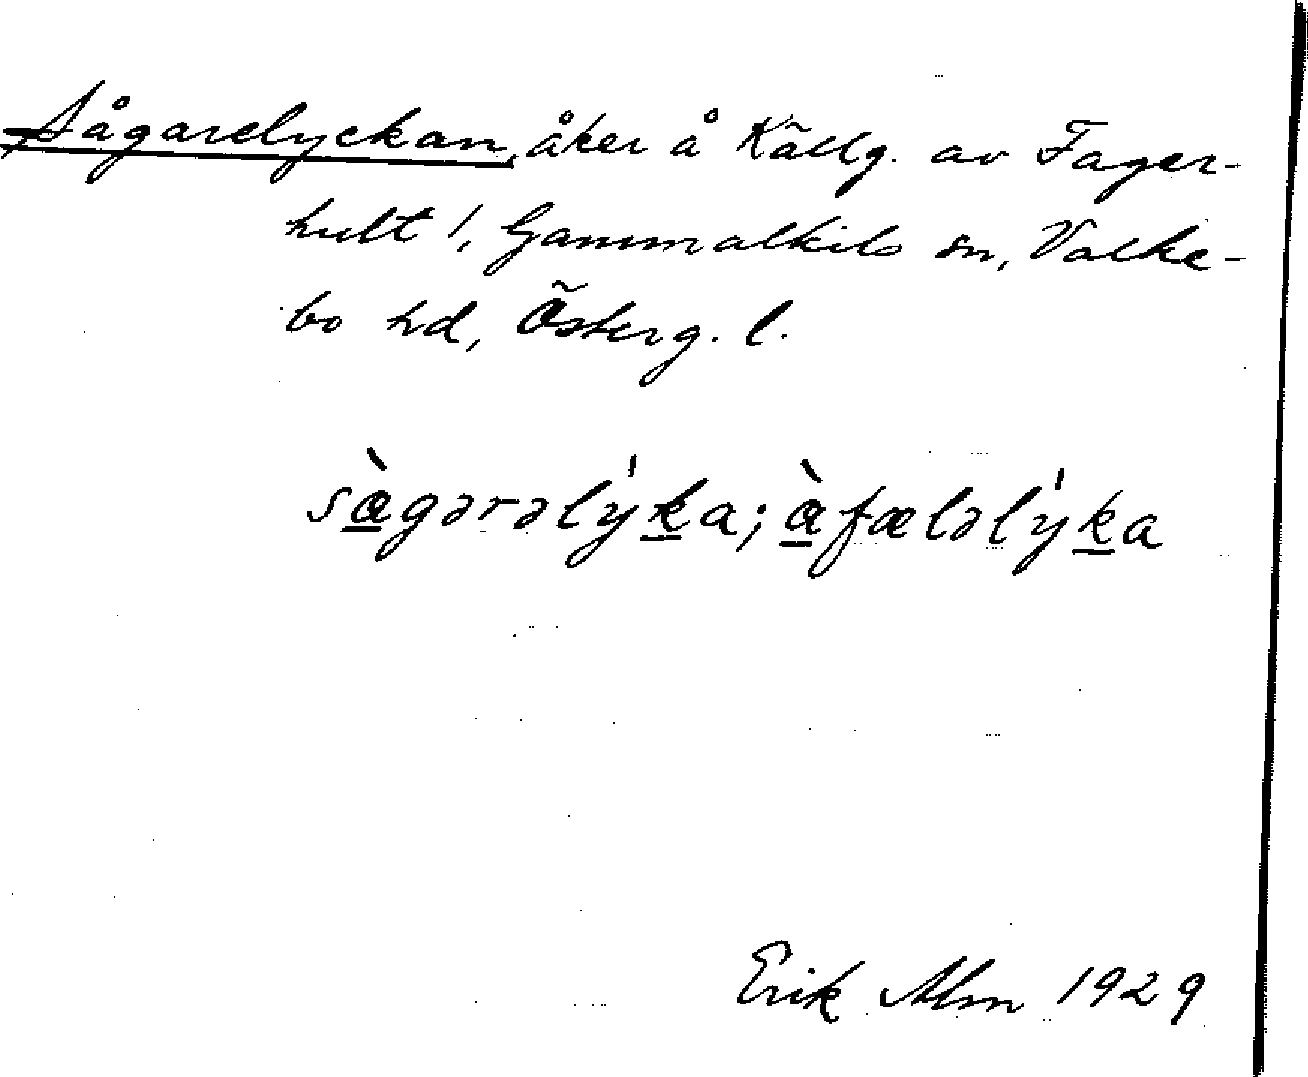 Sågarelyckan, åker å Källg. av Fager-
hult 1/, Gammalkils sn, Valke-
bo hd, Österg. l.
sæ̀gərəlýka; æ̀fæləlýka
Erik Alm 1929